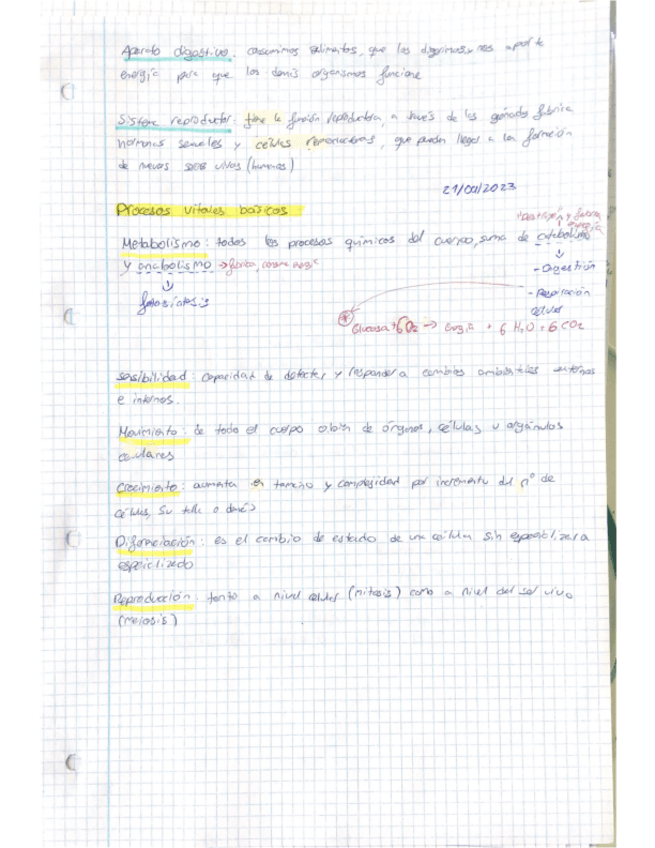 Aparato digestivo: consumimos alimentos, que los digerimos y nos aporte
energía para que los demás organismos funcione
Sistema reproductor: tiene la función reproductora, a través de las gónadas fabrica
hormonas sexuales y células reproductoras, que pueden llegar a la formación
de nuevos seres vivos (humanos)
21/09/2023
Procesos vitales básicos
Metabolismo: todos los procesos químicos del cuerpo, suma de catabolismo
y anabolismo → fabrica, consume energía
fotosíntesis
- Digestión
- Respiración
celular
Glucosa + 6O2 → Energía + 6 H2O + 6 CO2
Sensibilidad: capacidad de detectar y responder a cambios ambientales externos
e internos.
Movimiento: de todo el cuerpo o bien de órganos, células u orgánulos
celulares
Crecimiento: aumenta en tamaño y complejidad por incremento del nº de
células, su talla o
Diferenciación: es el cambio de estado de una célula sin especializar a
especializado
Reproducción: tanto a nivel celular (mitosis) como a nivel del ser vivo
(meiosis)